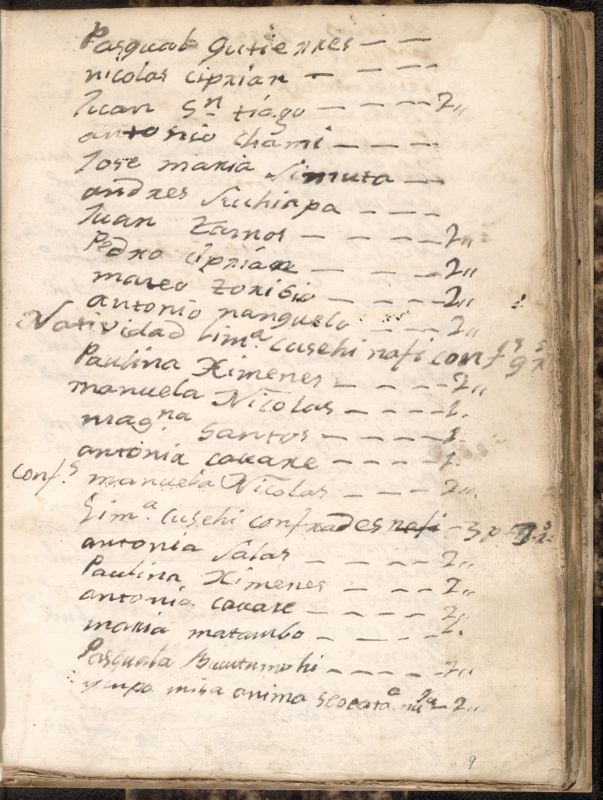 Pasqual gutierres — —
nicolas ciprian — — —
Juan Sn tiago — — — — 2,,
antonio chami — — — —
Jose maria Simuta — —
andres Suchiapa — — —
Juan Ramos — — — — 2,,
Pedro ciprian — — — 2,,
mateo toribio — — — — 2,,
antonio nangulo — — — 2,,
Natividad lima cusehi nafi conf.s 9 r
Paulina Ximenes — — — — 2,,
manuela Nicolas — — — — 1.
mag.na Santos — — — — 1
antonia couare — — — — 1.
conf.s manuela Nicolas — — — 2,,
lim.a cusehi confrades nafi — 3 p
antonia Salas — — — — 2,,
Paulina Ximenes — — — — 2,,
antonia couare — — — — 2,,
maria matambo — — — — 2.
Pasquala — — — — 2,,
misa anima — 2,,
9